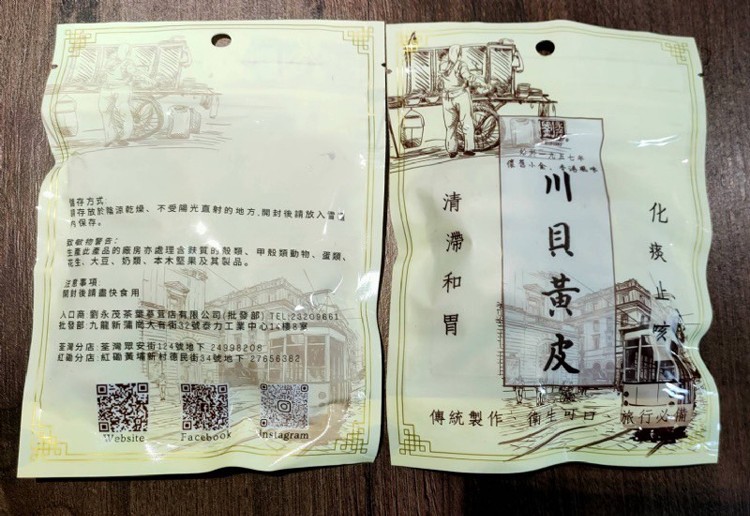 儲存方式:
儲存放於陰涼乾燥、不受陽光直射的地方,開封後請放入雪
內保存。
致敏物警告:
生產此產品的廠房亦處理含麩質的殼類、甲殼類動物、蛋類、
花生、大豆、奶類、本木堅果及其製品。
注意事項:
開封後請盡快食用
入口商 劉永茂茶葉蔘茸店有限公司(批發部) TEL:23209661
批發部 九龍新蒲崗大有街32號泰力工業中心14樓8室
荃灣分店: 荃灣眾安街124號地下 24998208
紅磡分店: 紅磡黃埔新村德民街34號地下 27656382
Website
Facebook
Instagram
始於一九五七年
懷舊小食、香港風味
川貝黃皮
清滯和胃
化痰止咳
傳統製作、衛生可口、旅行必備